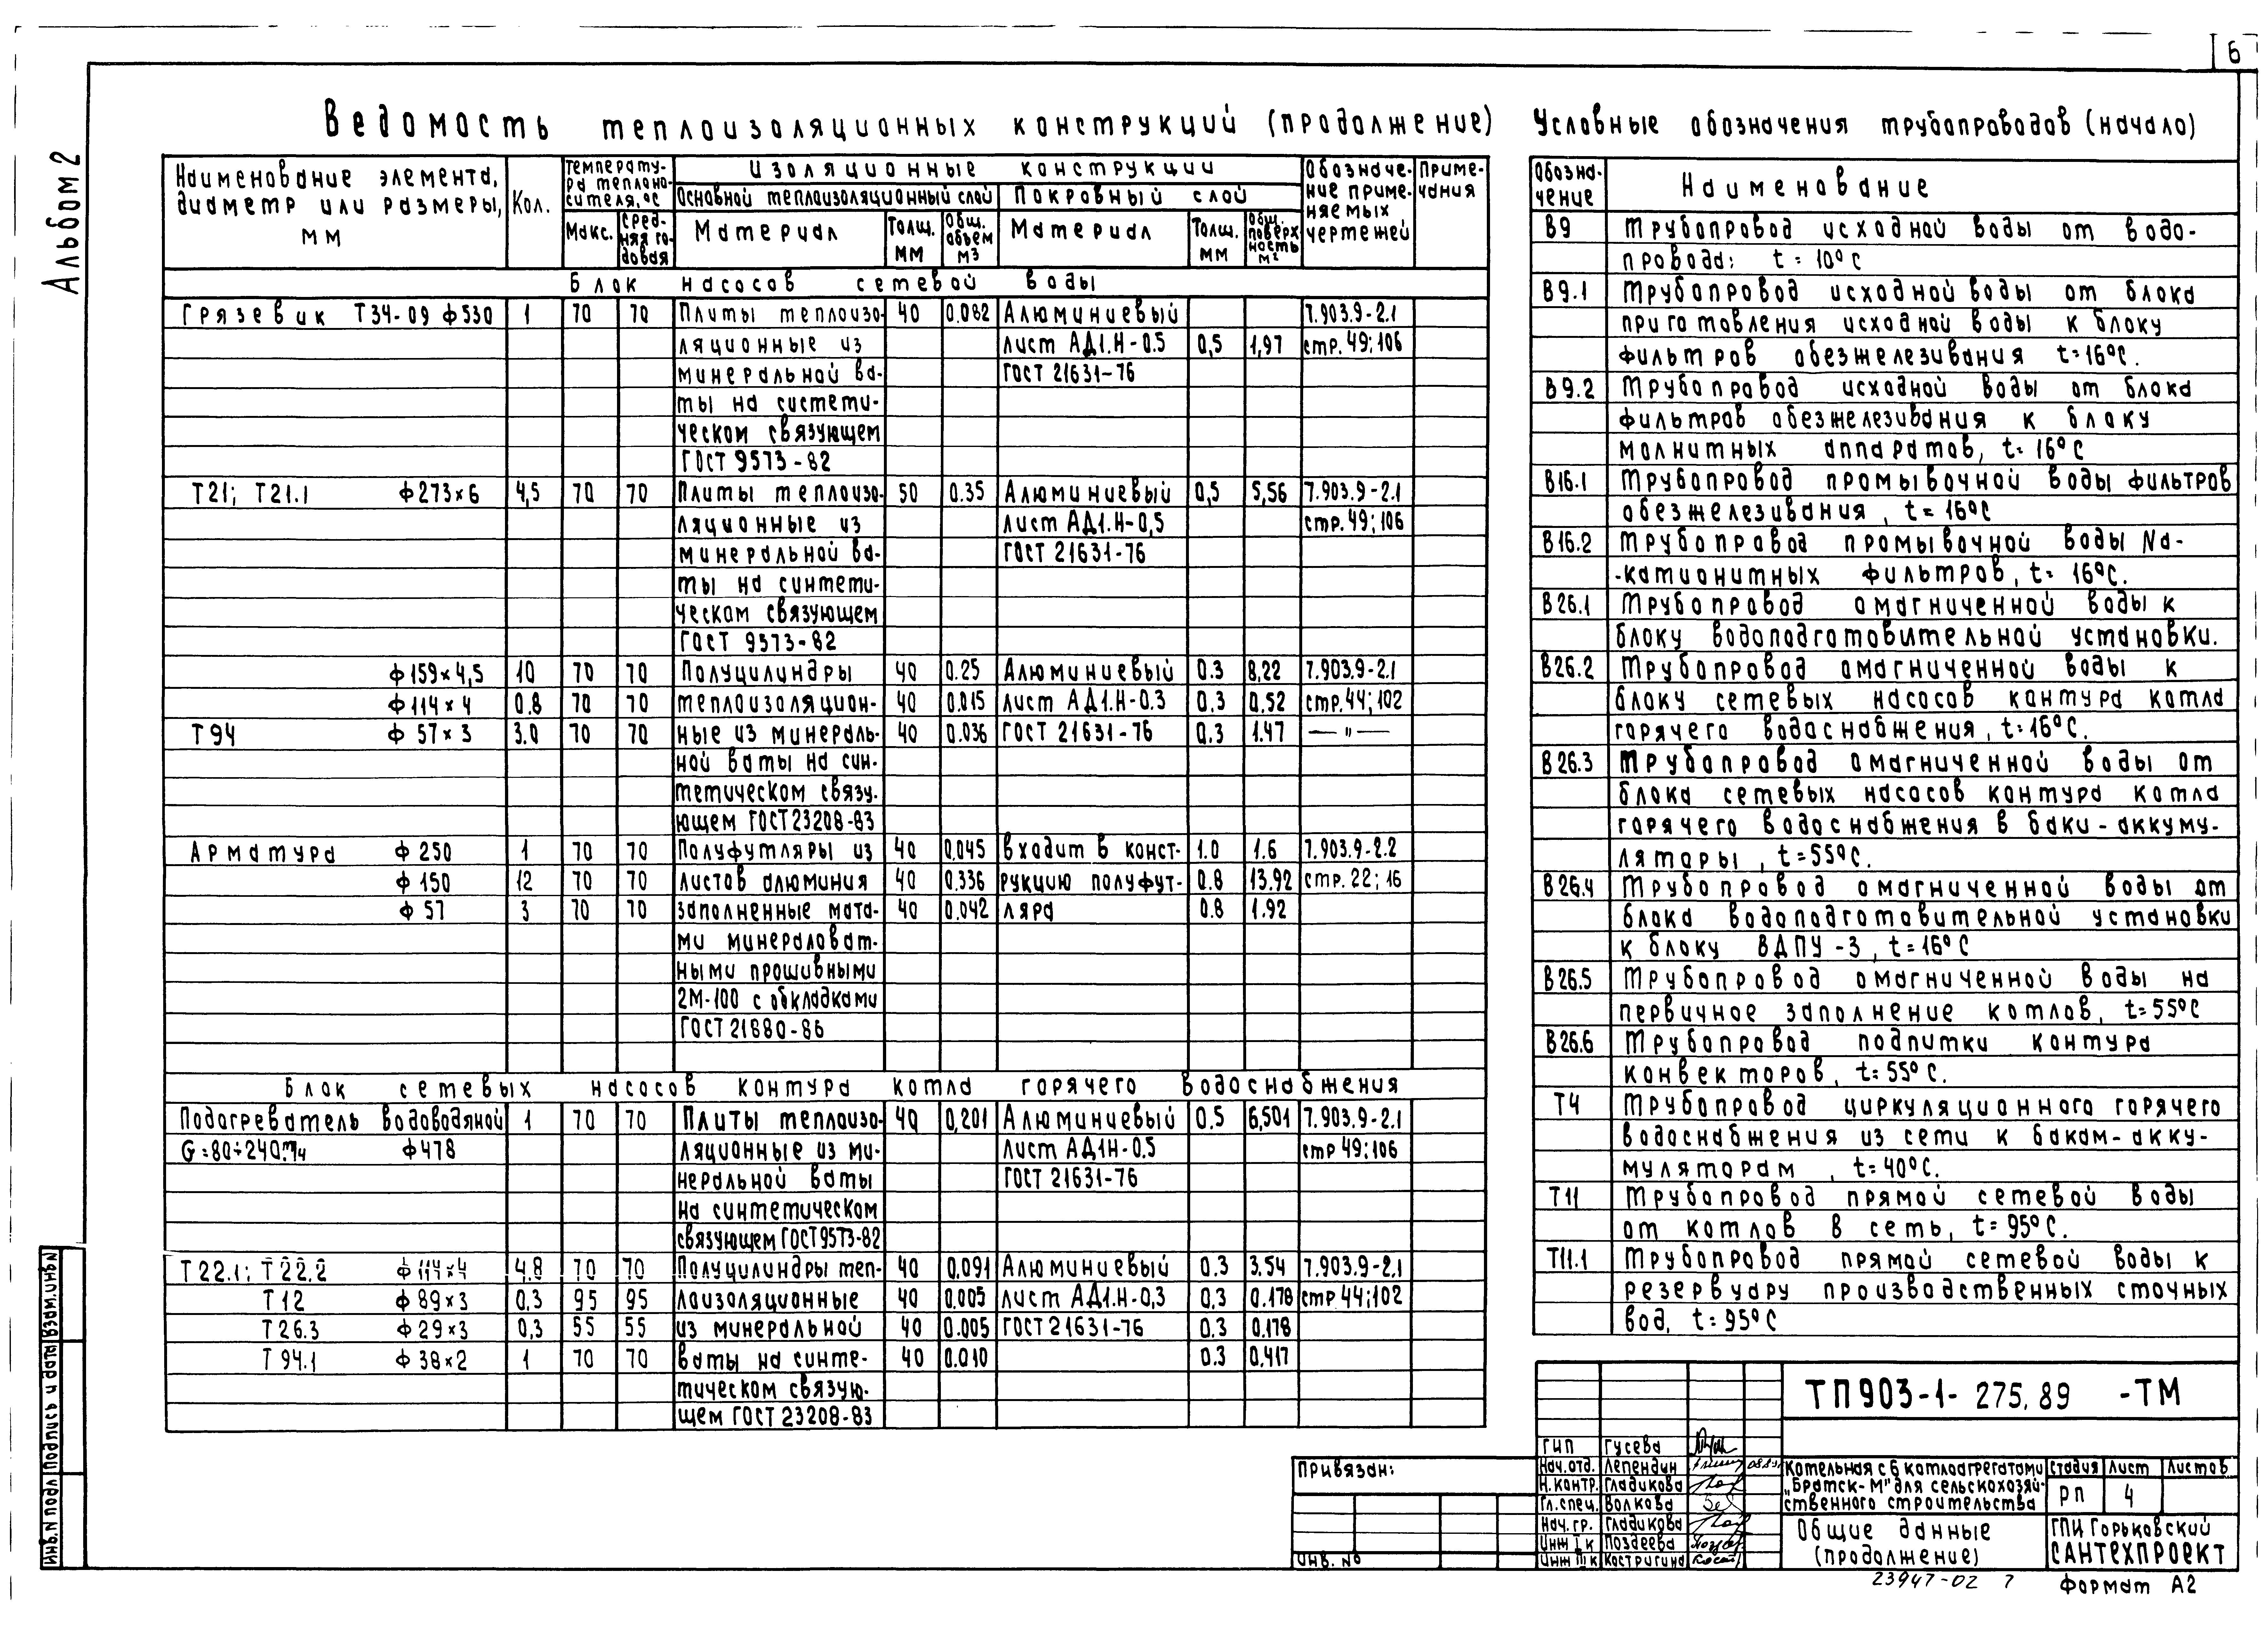 6
Альбом 2
Ведомость теплоизоляционных конструкций (продолжение)
Наименование элемента, диаметр или размеры, мм
Кол.
Температура теплоносителя, °С
Изоляционные конструкции
Обозначение применяемых чертежей
Примечания
Основной теплоизоляционный слой
Покровный слой
Макс.
Средняя годовая
Материал
Толщ. мм
Общ. объем м3
Материал
Толщ. мм
Общ. поверхность м²
Блок насосов сетевой воды
Грязевик Т34-09 ф530 1 70 70 Плиты теплоизо- 40 0.082 Алюминиевый 7.903.9-2.1
ляционные из лист АД1.Н-0.5 0,5 1,97 стр. 49; 106
минеральной ва- ГОСТ 21631-76
ты на систети-
ческом связующем
ГОСТ 9573-82
Т21; Т21.1 ф273×6 4,5 70 70 Плиты теплоизо- 50 0.35 Алюминиевый 0,5 5,56 7.903.9-2.1
ляционные из лист АД1.Н-0,5 стр. 49; 106
минеральной ва- ГОСТ 21631-76
ты на синтети-
ческом связующем
ГОСТ 9573-82
ф159×4,5 10 70 70 Полуцилиндры 40 0.25 Алюминиевый 0.3 8,22 7.903.9-2.1
ф114×4 0.8 70 70 теплоизоляцион- 40 0.015 лист АД1.Н-0.3 0,3 0,52 стр. 44; 102
Т94 ф 57×3 3.0 70 70 ные из минераль- 40 0.036 ГОСТ 21631-76 0.3 1.47 — " —
ной ваты на син-
тетическом связу-
ющем ГОСТ 23208-83
Арматура ф 250 1 70 70 Полуфутляры из 40 0.045 входит в конст- 1.0 1.6 7.903.9-2.2
ф 150 12 70 70 листов алюминия 40 0.336 рукцию полуфут- 0.8 13.92 стр. 22; 16
ф 57 3 70 70 заполненные мата- 40 0.042 ляра 0.8 1.92
ми минераловат-
ными прошивными
2М-100 с обкладками
ГОСТ 21880-86
Блок сетевых насосов контура котла горячего водоснабжения
Подогреватель водоводяной 1 70 70 Плиты теплоизо- 40 0,201 Алюминиевый 0.5 6,501 7.903.9-2.1
G=80÷240т/ч ф478 ляционные из ми- лист АД1Н-0.5 стр 49; 106
неральной ваты ГОСТ 21631-76
на синтетическом
связующем ГОСТ 9573-82
Т22.1; Т22.2 ф114×4 4,8 70 70 Полуцилиндры теп- 40 0.091 Алюминиевый 0.3 3.54 7.903.9-2.1
Т12 ф 89×3 0,3 95 95 лоизоляционные 40 0.005 лист АД1.Н-0,3 0,3 0.178 стр 44; 102
Т26.3 ф 29×3 0,3 55 55 из минеральной 40 0.005 ГОСТ 21631-76 0.3 0.178
Т 94.1 ф 38×2 1 70 70 ваты на синте- 40 0.010 0.3 0,417
тическом связую-
щем ГОСТ 23208-83
Условные обозначения трубопроводов (начало)
Обозна-чение Наименование
В9 Трубопровод исходной воды от водо-
провода: t = 10°С
В9.1 Трубопровод исходной воды от блока
приготовления исходной воды к блоку
фильтров обезжелезивания t=16°С.
В9.2 Трубопровод исходной воды от блока
фильтров обезжелезивания к блоку
молнитных аппаратов, t= 16°С
В16.1 Трубопровод промывочной воды фильтров
обезжелезивания, t= 16°С
В16.2 Трубопровод промывочной воды Na-
-катионитных фильтров, t= 16°С.
В26.1 Трубопровод омагниченной воды к
блоку водоподготовительной установки.
В26.2 Трубопровод омагниченной воды к
блоку сетевых насосов контура котла
горячего водоснабжения, t=16°С.
В26.3 Трубопровод омагниченной воды от
блока сетевых насосов контура котла
горячего водоснабжения в баки-аккуму-
ляторы, t=55°С.
В26.4 Трубопровод омагниченной воды от
блока водоподготовительной установки
к блоку ВДПУ-3, t=16°С
В26.5 Трубопровод омагниченной воды на
первичное заполнение котлов, t=55°С
В26.6 Трубопровод подпитки контура
конвекторов, t=55°С.
Т4 Трубопровод циркуляционного горячего
водоснабжения из сети к бакам-акку-
муляторам, t=40°С.
Т11 Трубопровод прямой сетевой воды
от котлов в сеть, t= 95°С.
Т11.1 Трубопровод прямой сетевой воды к
резервуару производственных сточных
вод, t= 95°С
Инв. N подл Подпись и дата Взам. инв N
Привязан:
Инв. №
ТП903-1-275.89 -ТМ
ГИП Гусева
Нач.отд. Лепендин
Н.контр. Гладикова
Гл.спец. Волкова
Нач.гр. Гладикова
Инж I к Поздеева
Инж III к Кастригина
Котельная с 6 котлоагрегатами
"Братск-М" для сельскохозяй-
ственного строительства
Стадия Лист Листов
РП 4
Общие данные
(продолжение)
ГПИ Горьковский
САНТЕХПРОЕКТ
23947-02 7
Формат А2